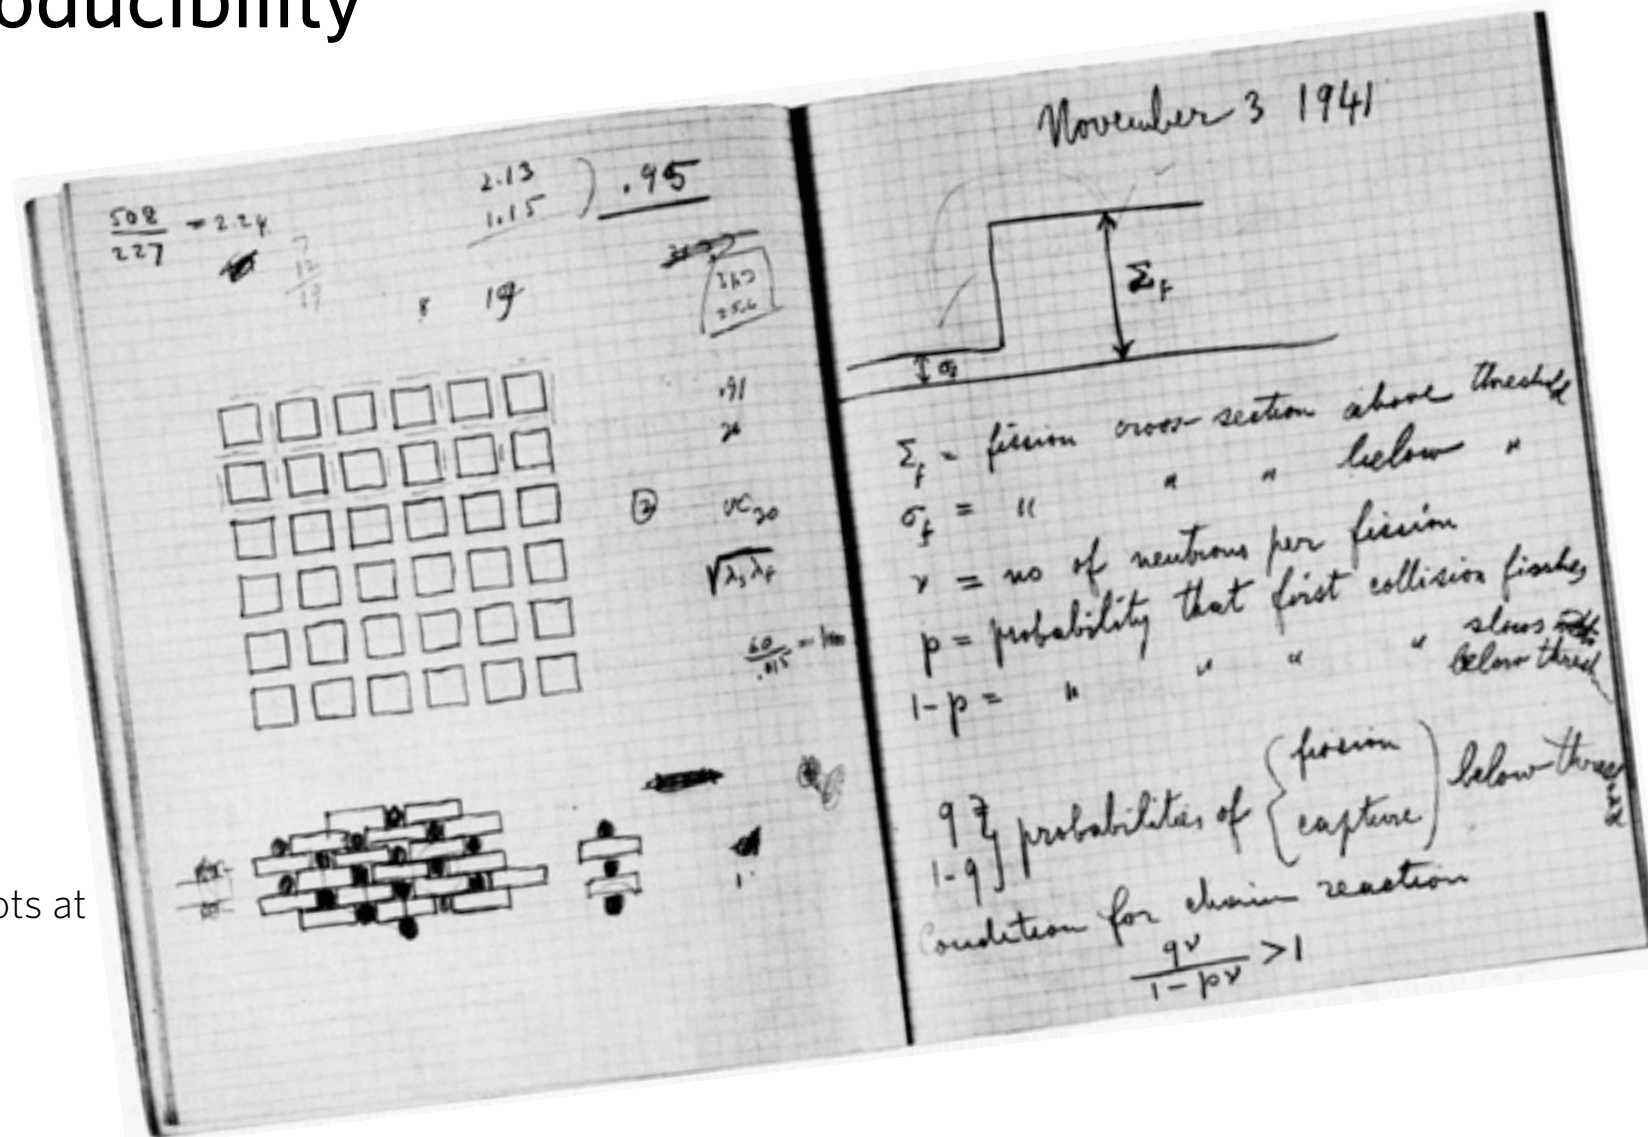 oducibility
November 3 1941
508
227
= 2.24
2.13
1.15
) .95
12
17
8 19
.91
UC₃₀
√λₛλf
60
.015
Σf
σf
Σf = fission cross-section above threshold
σf = " " " below "
ν = no of neutrons per fission
p = probability that first collision fissions
1-p = " " " " slows
below thresh
q
1-q } probabilities of { fission
capture } below threshold
Condition for chain reaction
qν
1-pν
>1
pts at